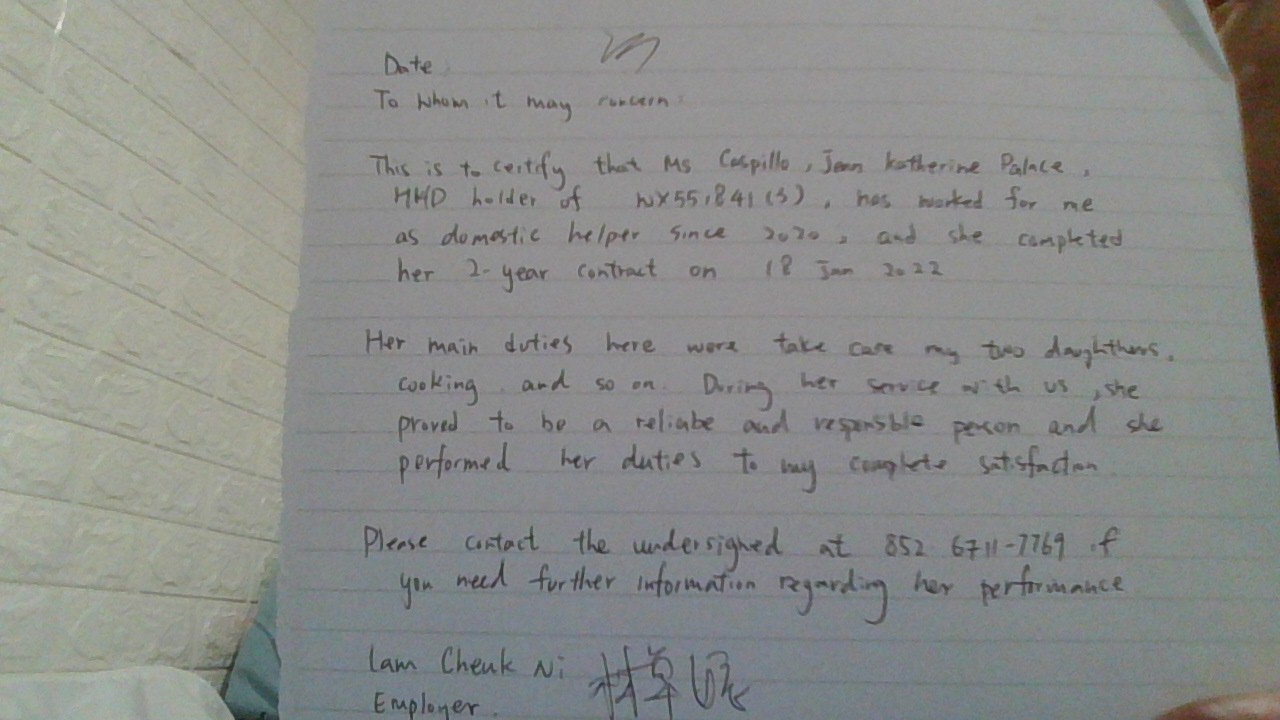 Date:
To whom it may concern:
This is to certify that Ms Caspillo, Jean Katherine Palace,
HKID holder of WX55,841(3), has worked for me
as domestic helper since 2020, and she completed
her 2-year contract on 18 Jan 2022
Her main duties here were take care my two daughthers,
cooking and so on. During her service with us, she
proved to be a reliabe and responsible person and she
performed her duties to my complete satisfaction
Please contact the undersigned at 852 6711-7769 if
you need further information regarding her performance
Lam Cheuk Ni 林卓
Employer.